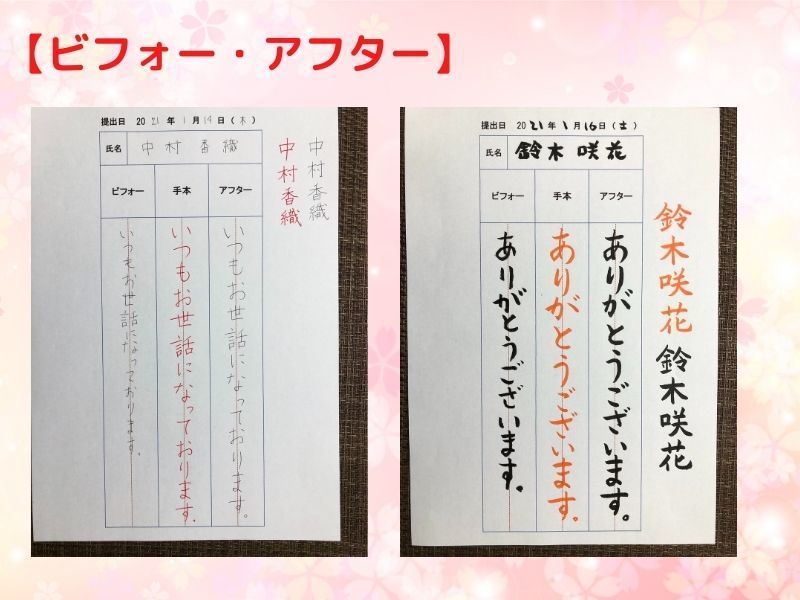 【ビフォー・アフター】
提出日 2021年1月14日(木)
氏名 中村香織
ビフォー 手本 アフター
いつもお世話になっております。
いつもお世話になっております。
いつもお世話になっております。
中村香織
中村香織
提出日 2021年1月16日(土)
氏名 鈴木咲花
ビフォー 手本 アフター
ありがとうございます。
ありがとうございます。
ありがとうございます。
鈴木咲花 鈴木咲花